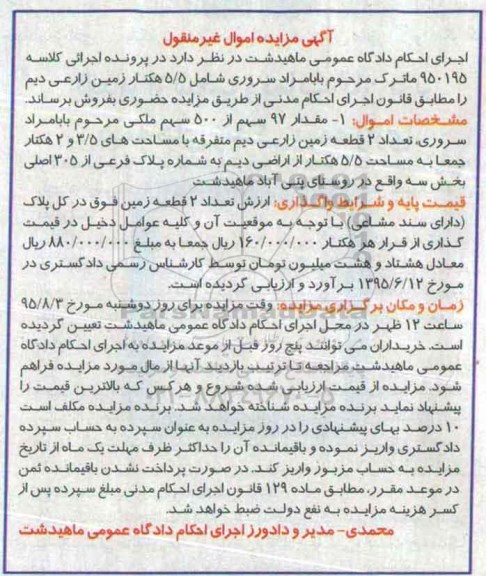 آگهی مزایده اموال غیرمنقول
اجرای احکام دادگاه عمومی ماهیدشت در نظر دارد در پرونده اجرائی کلاسه
۹۵۰۱۹۵ ماترک مرحوم بابامراد سروری شامل ۵/۵ هکتار زمین زارعی دیم
را مطابق قانون اجرای احکام مدنی از طریق مزایده حضوری بفروش برساند.
مشخصات اموال: ۱- مقدار ۹۷ سهم از ۵۰۰ سهم ملکی مرحوم بابامراد
سروری، تعداد ۲ قطعه زمین زارعی دیم متفرقه با مساحت های ۳/۵ و ۲ هکتار
جمعا به مساحت ۵/۵ هکتار از اراضی دیم به شماره پلاک فرعی از ۳۰۵ اصلی
بخش سه واقع در روستای پنی آباد ماهیدشت
قیمت پایه و شرایط واگذاری: ارزش تعداد ۲ قطعه زمین فوق در کل پلاک
(دارای سند مشاعی) با توجه به موقعیت آن و کلیه عوامل دخیل در قیمت
گذاری از قرار هر هکتار ۱۶۰/۰۰۰/۰۰۰ ریال جمعا به مبلغ ۸۸۰/۰۰۰/۰۰۰ ریال
معادل هشتاد و هشت میلیون تومان توسط کارشناس رسمی دادگستری در
مورخ ۱۳۹۵/۶/۱۲ برآورد و ارزیابی گردیده است.
زمان و مکان برگزاری مزایده: وقت مزایده برای روز دوشنبه مورخ ۹۵/۸/۳
ساعت ۱۲ ظهر در محل اجرای احکام دادگاه عمومی ماهیدشت تعیین گردیده
است. خریداران می توانند پنج روز قبل از موعد مزایده به اجرای احکام دادگاه
عمومی ماهیدشت مراجعه تا ترتیب بازدید آنها از مال مورد مزایده فراهم
شود. مزایده از قیمت ارزیابی شده شروع و هرکس که بالاترین قیمت را
پیشنهاد نماید برنده مزایده شناخته خواهد شد. برنده مزایده مکلف است
۱۰ درصد بهای پیشنهادی را در روز مزایده به عنوان سپرده به حساب سپرده
دادگستری واریز نموده و باقیمانده آن را حداکثر ظرف مهلت یک ماه از تاریخ
مزایده به حساب مزبور واریز کند. در صورت پرداخت نشدن باقیمانده ثمن
در موعد مقرر، مطابق ماده ۱۲۹ قانون اجرای احکام مدنی مبلغ سپرده پس از
کسر هزینه مزایده به نفع دولت ضبط خواهد شد.
محمدی- مدیر و دادورز اجرای احکام دادگاه عمومی ماهیدشت